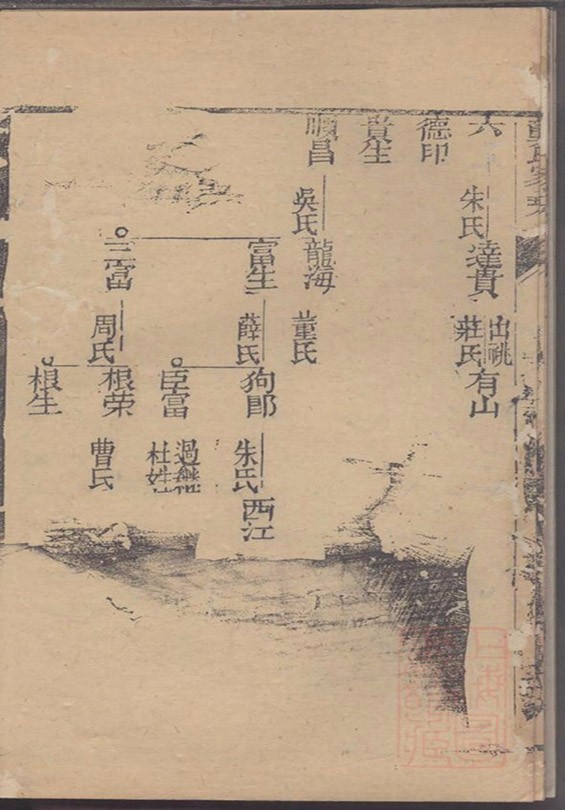 六
朱氏
達貴
出祧
莊氏
有山
德印
貴生
順昌
吳氏
龍海
董氏
富生
薛氏
狗郎
朱氏
西江
臣富
過繼
杜姓
三富
周氏
根荣
曹氏
根生